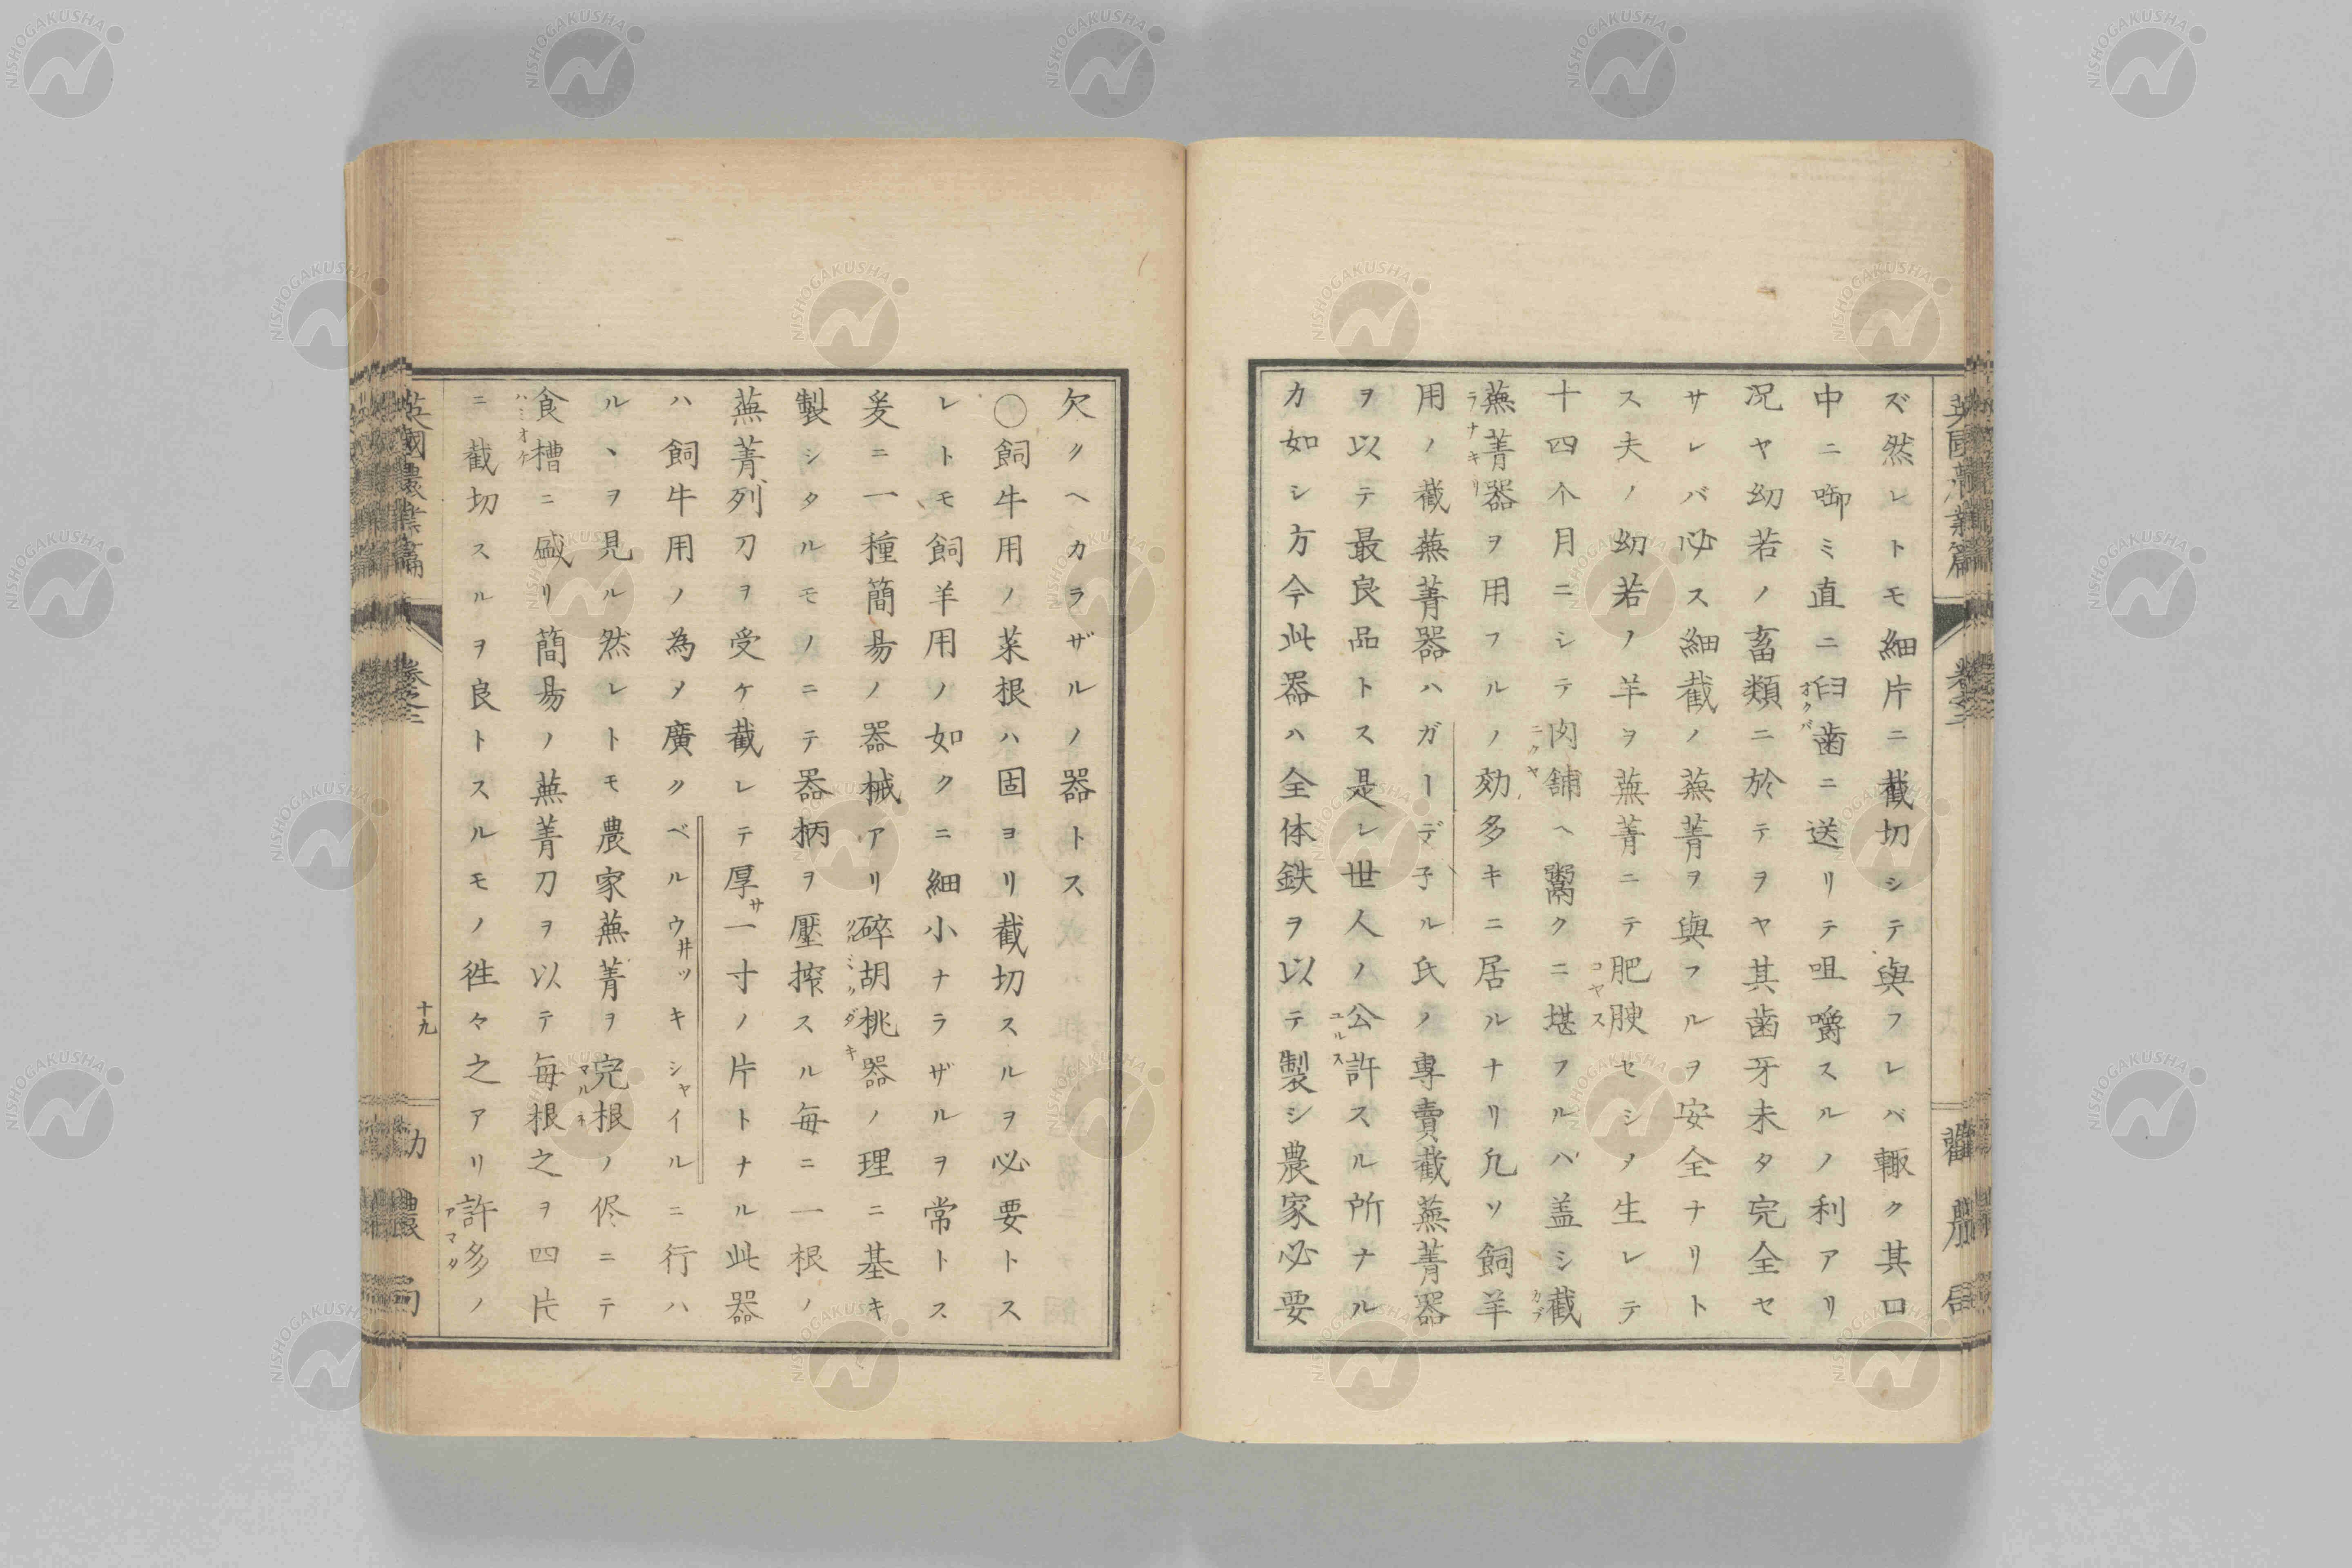 ズ然レトモ細片ニ截切シテ與フレバ輙ク其口
中ニ啣ミ直ニ臼歯ニ送リテ咀嚼スルノ利アリ
况ヤ幼若ノ畜類ニ於テヲヤ其歯牙未タ完全セ
サレバ必ス細截ノ蕪菁ヲ與フルヲ安全ナリト
ス夫ノ幼若ノ羊ヲ蕪菁ニテ肥腴セシメ生レテ
十四个月ニシテ肉舗ヘ鬻クニ堪フルハ盖シ截
蕪菁器ヲ用フルノ効多キニ居ルナリ凢ソ飼羊
用ノ截蕪菁器ハガーデ子ル氏ノ專賣截蕪菁器
ヲ以テ最良品トス是レ世人ノ公許スル所ナル
カ如シ方今此器ハ全体鉄ヲ以テ製シ農家必要
欠クヘカラザルノ器トス
〇飼牛用ノ菜根ハ固ヨリ截切スルヲ必要トス
レトモ飼羊用ノ如クニ細小ナラザルヲ常トス
爰ニ一種簡易ノ器械アリ碎胡桃器ノ理ニ基キ
製シタルモノニテ器柄ヲ壓搾スル毎ニ一根ノ
蕪菁列刀ヲ受ケ截レテ厚サ一寸ノ片トナル此器
ハ飼牛用ノ為メ廣クベルウ井ツキシャイルニ行ハ
ルヽヲ見ル然レトモ農家蕪菁ヲ完根ノ侭ニテ
食槽ニ盛リ簡易ノ蕪菁刀ヲ以テ毎根之ヲ四片
ニ截切スルヲ良トスルモノ徃々之アリ許多ノ
英國農業篇
卷之二
十九
勸農局